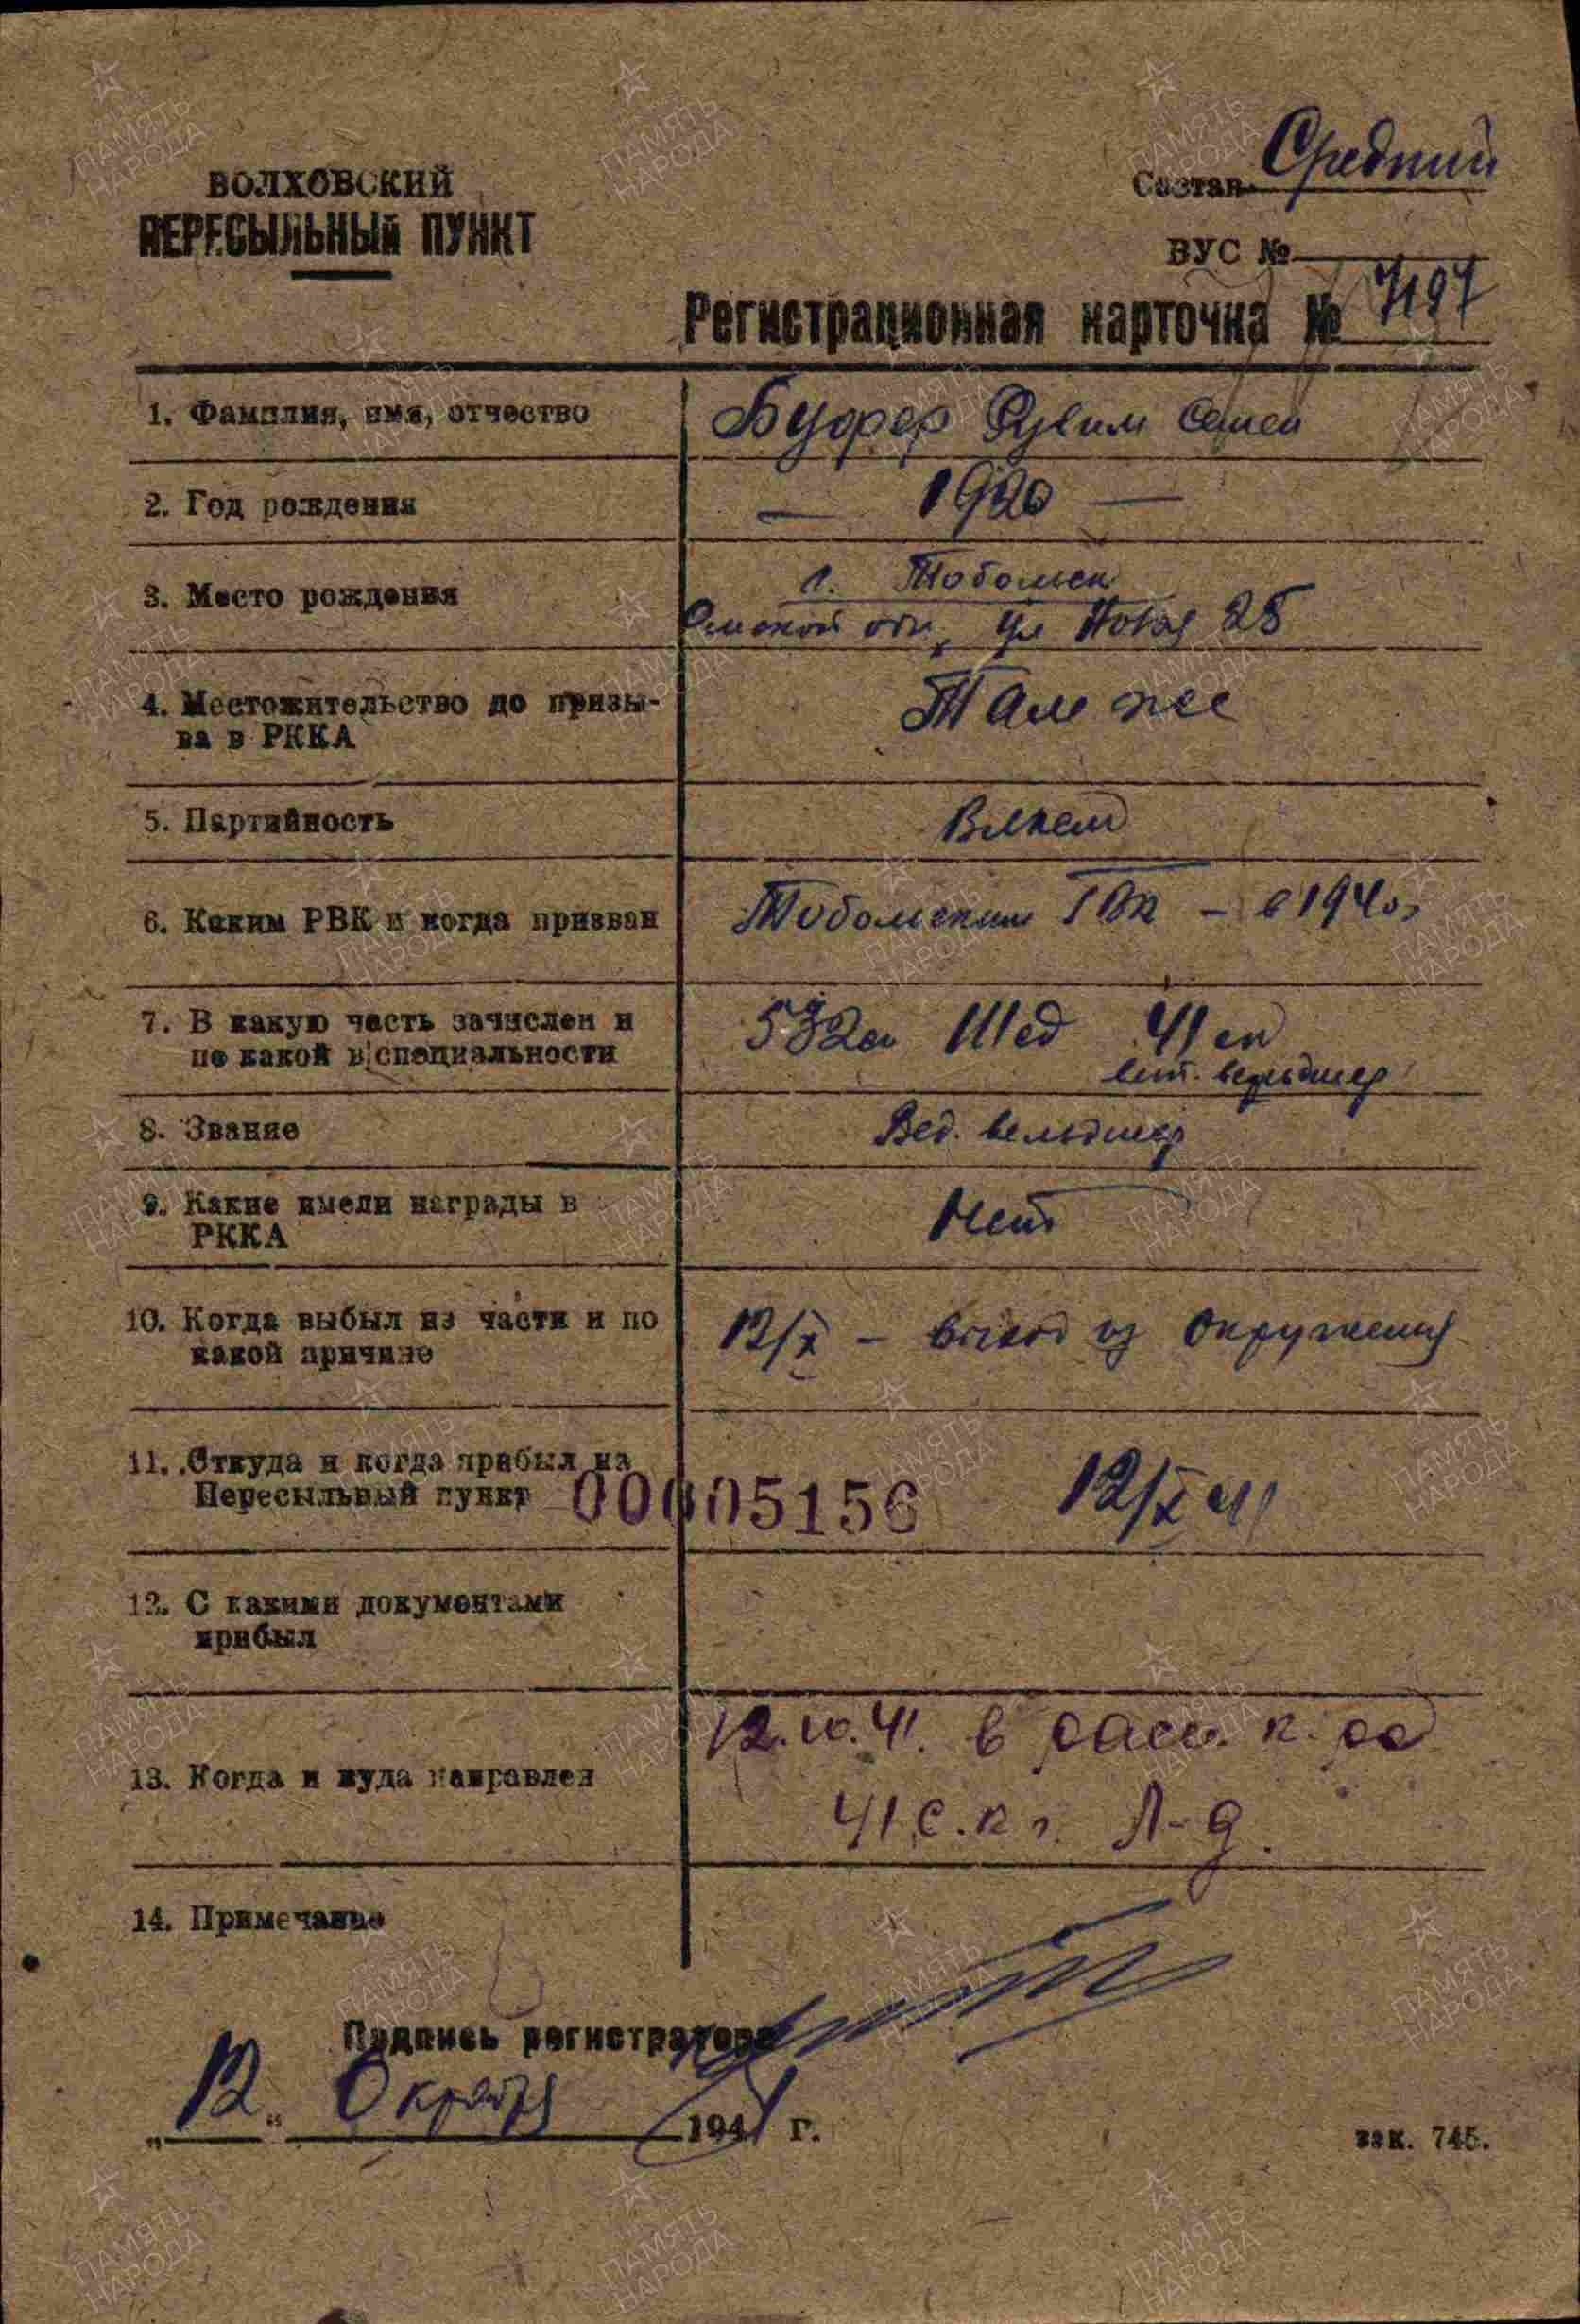 ВОЛХОВСКИЙ
ПЕРЕСЫЛЬНЫЙ ПУНКТ
Состав Средний
ВУС №
Регистрационная карточка № 7197
1. Фамилия, имя, отчество Буфер Рувим Семен
2. Год рождения — 1920 —
3. Место рождения г. Тобольск
Омской обл, ул Новая 25
4. Местожительство до призы-
ва в РККА Там же
5. Партийность Влксм
6. Каким РВК и когда призван Тобольским ГВК – в 1940г
7. В какую часть зачислен и
по какой в|специальности 532 111 сд 41 ск
вет. вельдшер
8. Звание Вед. вельдшер
9. Какие имели награды в
РККА Нет
10. Когда выбыл из части и по
какой причине 12/X – выход из Окружения
11. Откуда и когда прибыл на
Пересыльный пункт 00005156 12/X 41
12. С какими документами
прибыл
13. Когда и куда направлен 12.10.41. в расп. к.
41 с.к г. Л-д.
14. Примечание
Подпись регистратора
„12“ Октября 1941 г.
зак. 745.
ПАМЯТЬ
НАРОДА